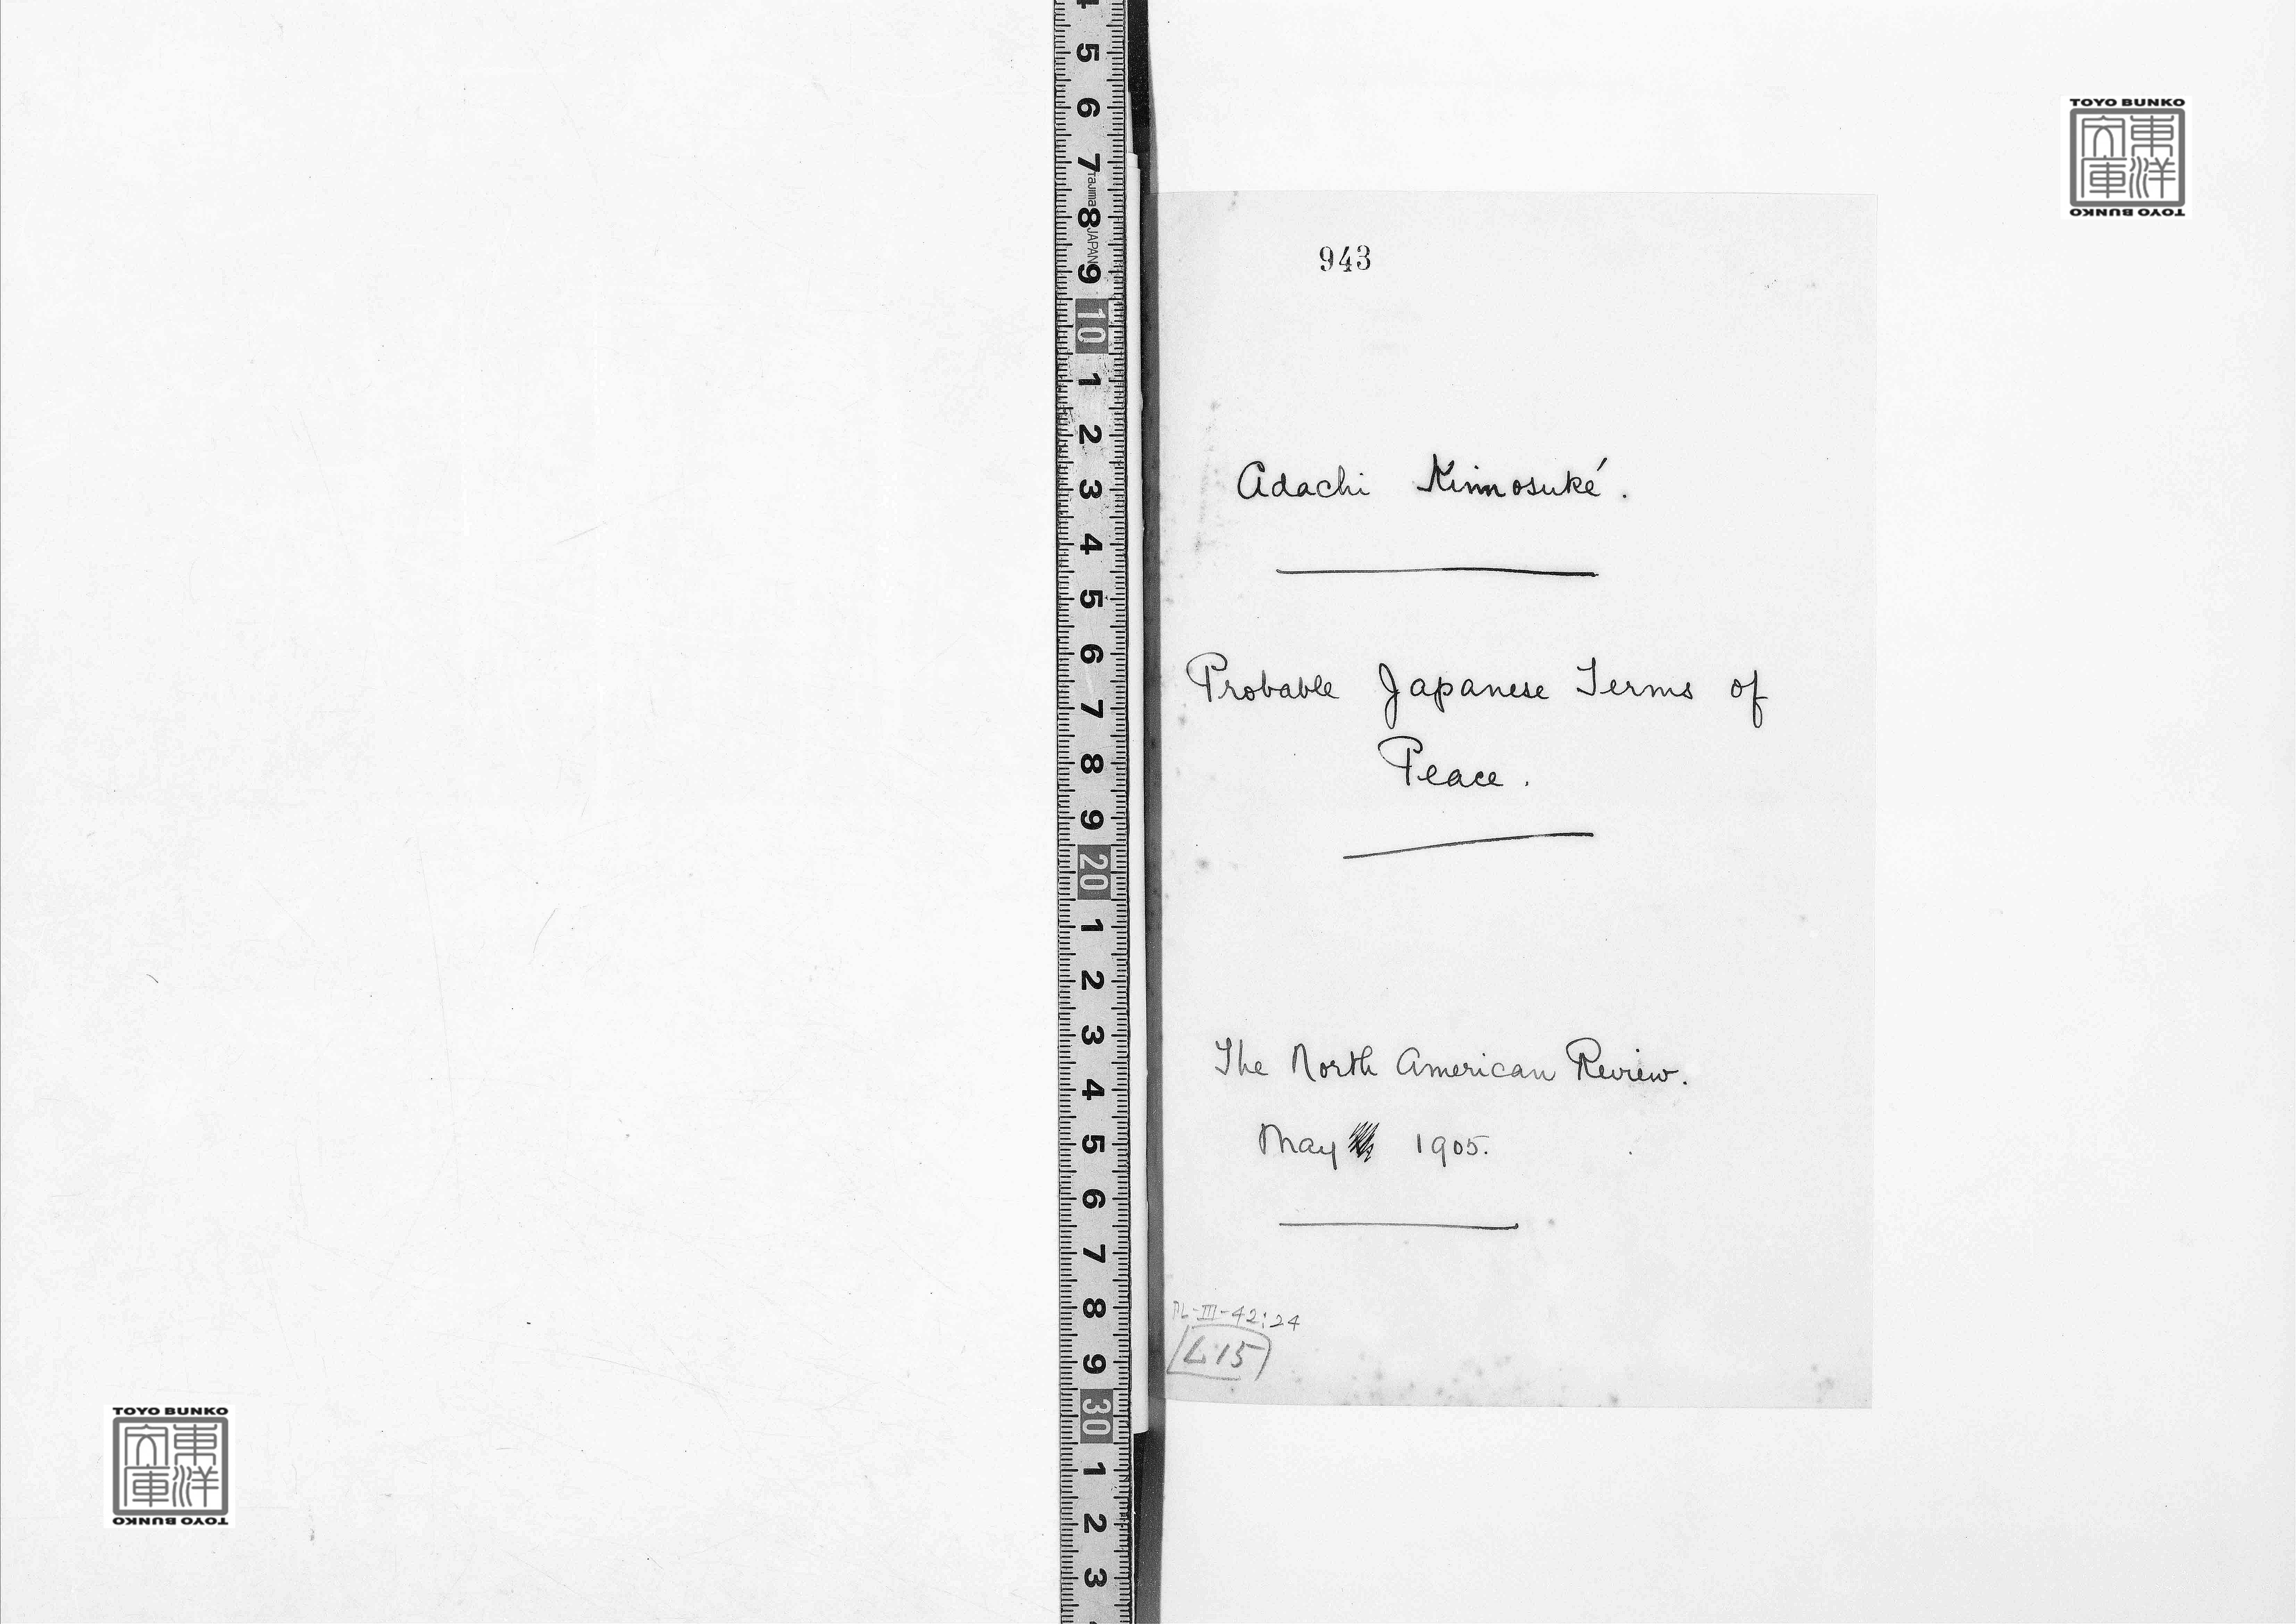 4
5
6
7
Tajima
8
JAPAN
9
10
1
2
3
4
5
6
7
8
9
20
1
2
3
4
5
6
7
8
9
30
1
2
3
TOYO BUNKO
東洋
文庫
TOYO BUNKO
943
Adachi Kinnosuké.
Probable Japanese Terms of
Peace.
The North American Review.
May 1905.
PL-III-42:24
L15
TOYO BUNKO
東洋
文庫
TOYO BUNKO